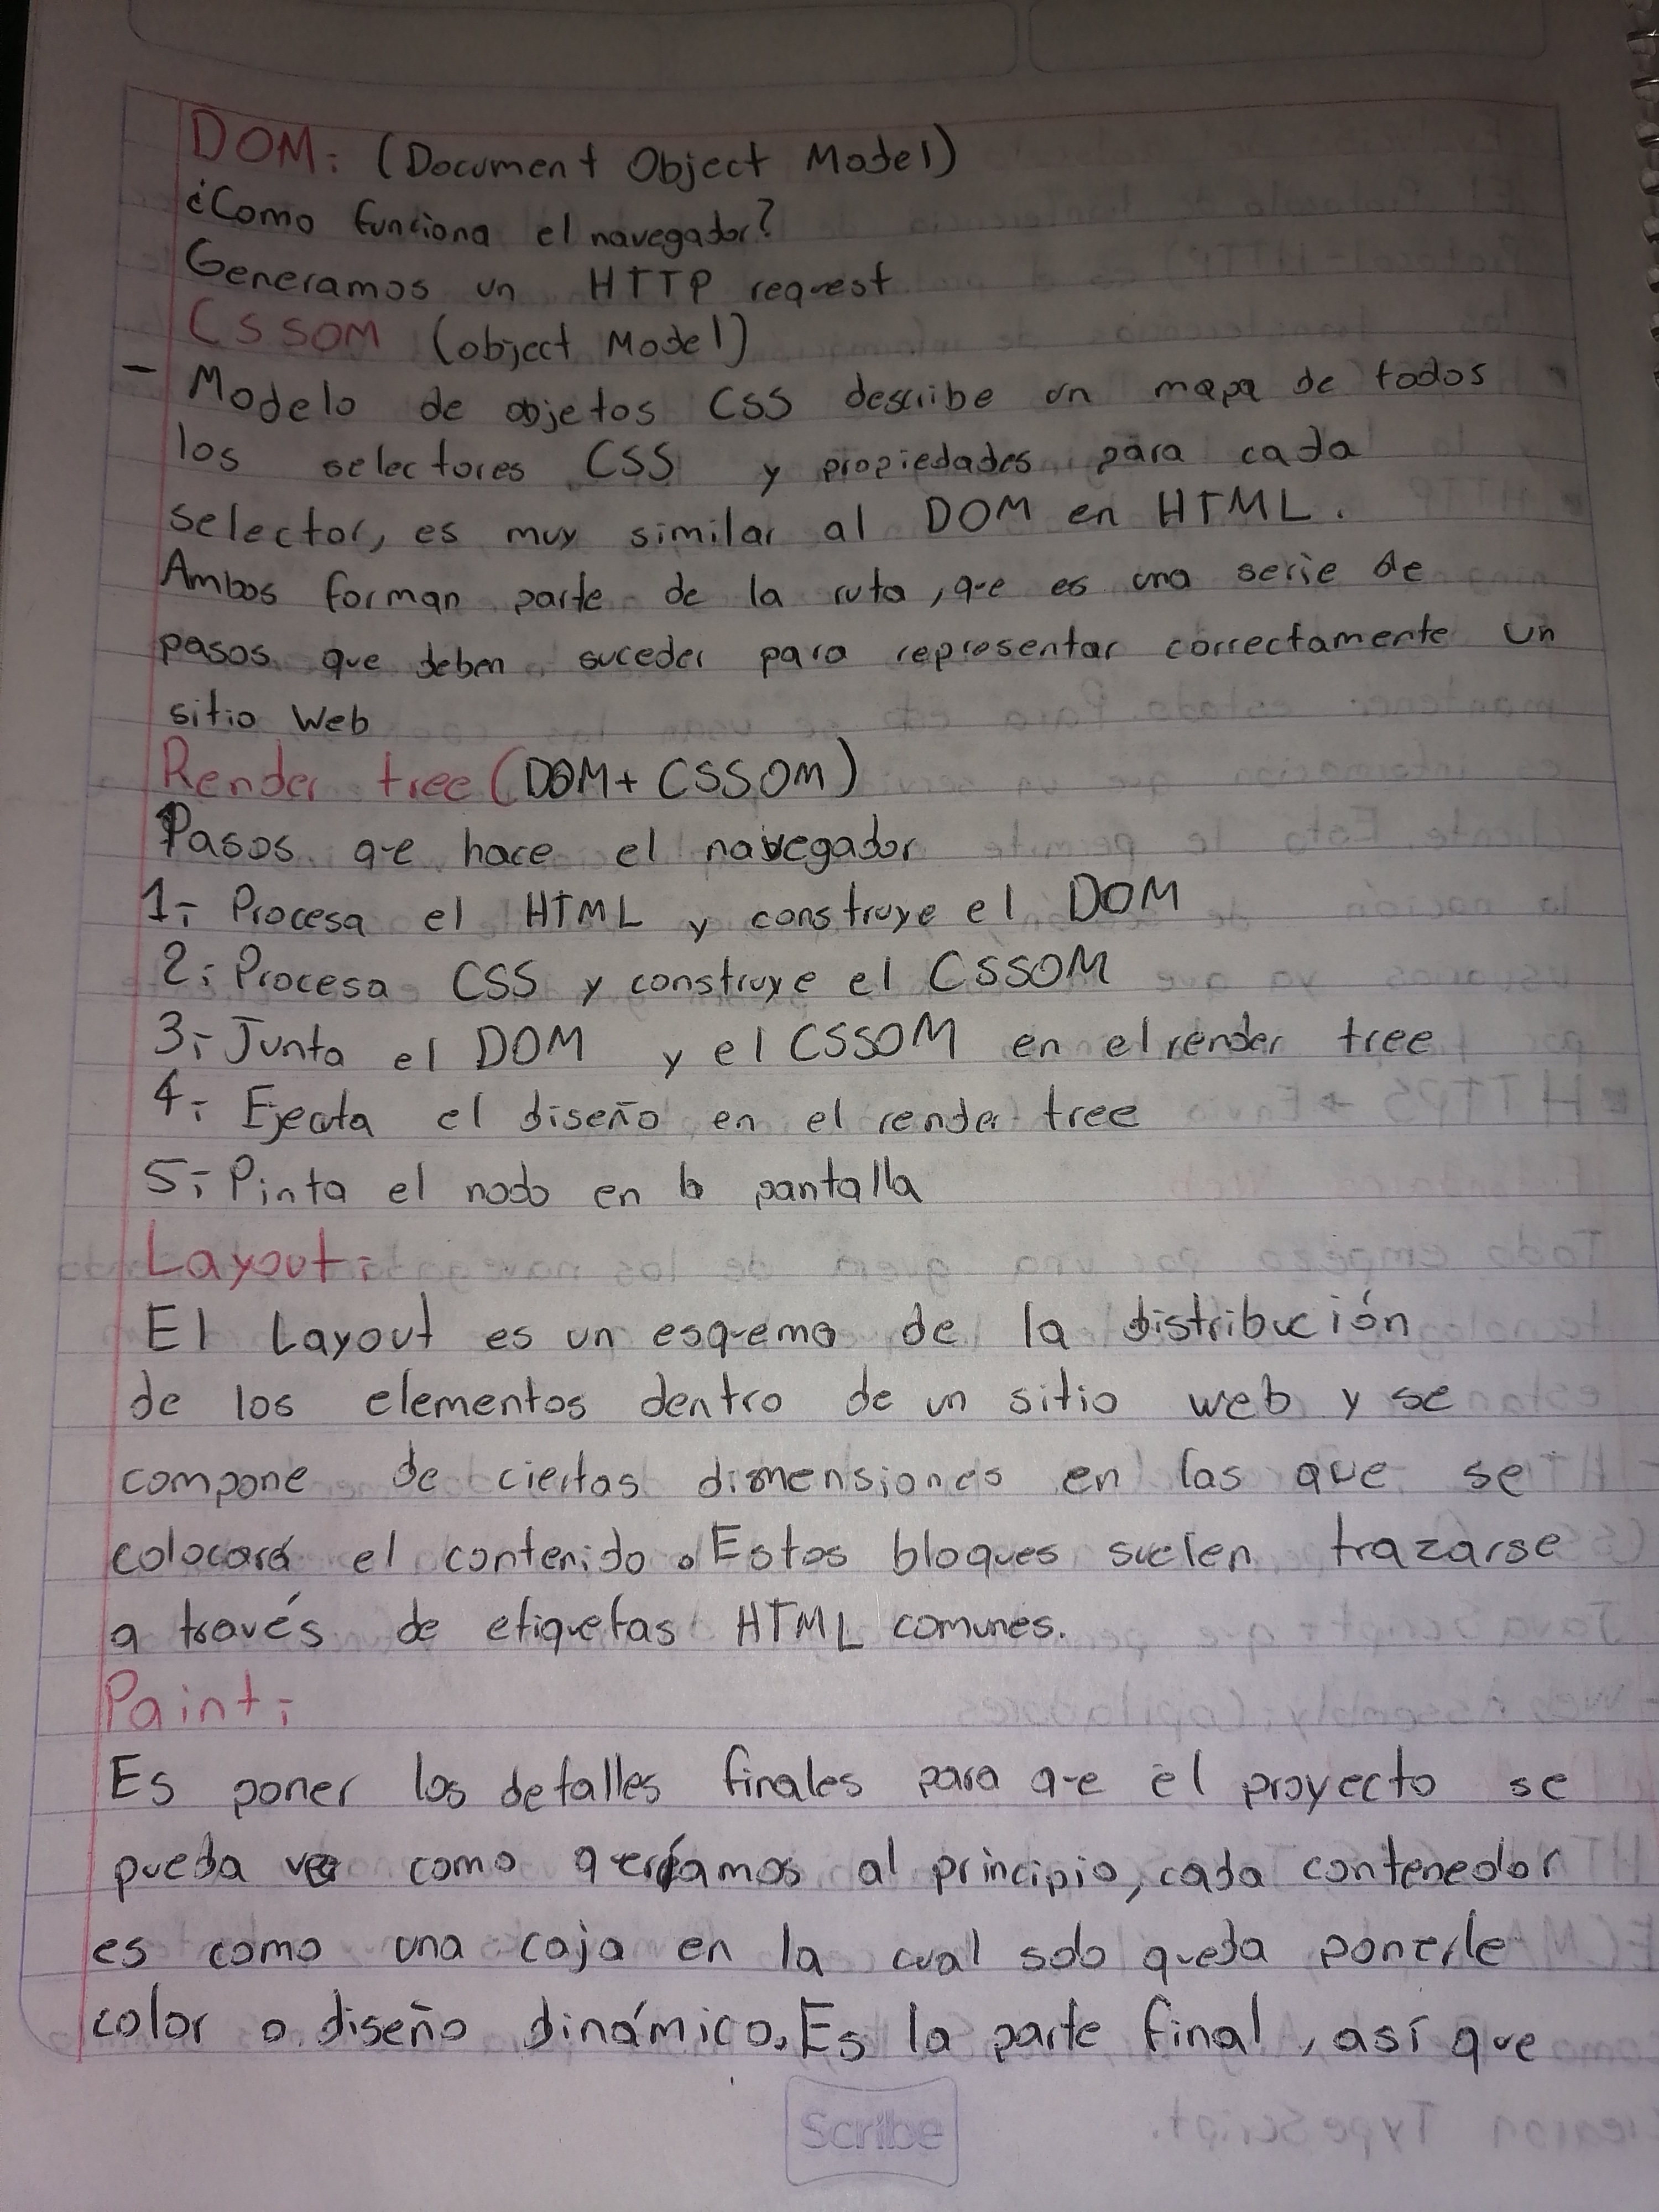 DOM: (Document Object Model)
¿Como funciona el navegador?
Generamos un HTTP request
CSSOM (object Model)
- Modelo de objetos CSS describe un mapa de todos
los selectores CSS y propiedades para cada
selector, es muy similar al DOM en HTML.
Ambos forman parte de la ruta, que es una serie de
pasos que deben suceder para representar correctamente un
sitio Web
Render tree (DOM + CSSOM)
Pasos que hace el navegador
1.- Procesa el HTML y construye el DOM
2.- Procesa CSS y construye el CSSOM
3.- Junta el DOM y el CSSOM en el render tree
4.- Ejecuta el diseño en el render tree
5.- Pinta el nodo en la pantalla
Layout:
El Layout es un esquema de la distribución
de los elementos dentro de un sitio web y se
compone de ciertas dimensiones en las que se
colocará el contenido. Estos bloques suelen trazarse
a través de etiquetas HTML comunes.
Paint:
Es poner los detalles finales para que el proyecto se
pueda ver como queríamos al principio, cada contenedor
es como una caja en la cual solo queda ponerle
color o diseño dinámico. Es la parte final, así que
Scribe